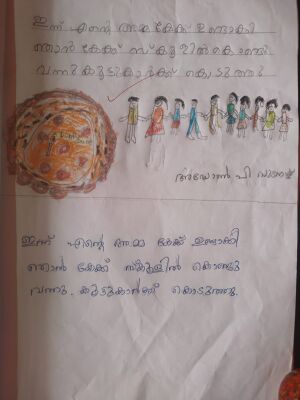 ഇന്ന് എന്റെ അമ്മ കേക്ക് ഉണ്ടാക്കി
ഞാൻ കേക്ക് സ്കൂളിൽ കൊണ്ടു
വന്നു കൂട്ടുകാർക്ക് കൊടുത്തു
ഇന്ന് എന്റെ അമ്മ കേക്ക് ഉണ്ടാക്കി
ഞാൻ കേക്ക് സ്കൂളിൽ കൊണ്ടു
വന്നു. കൂട്ടുകാർക്ക് കൊടുത്തു.